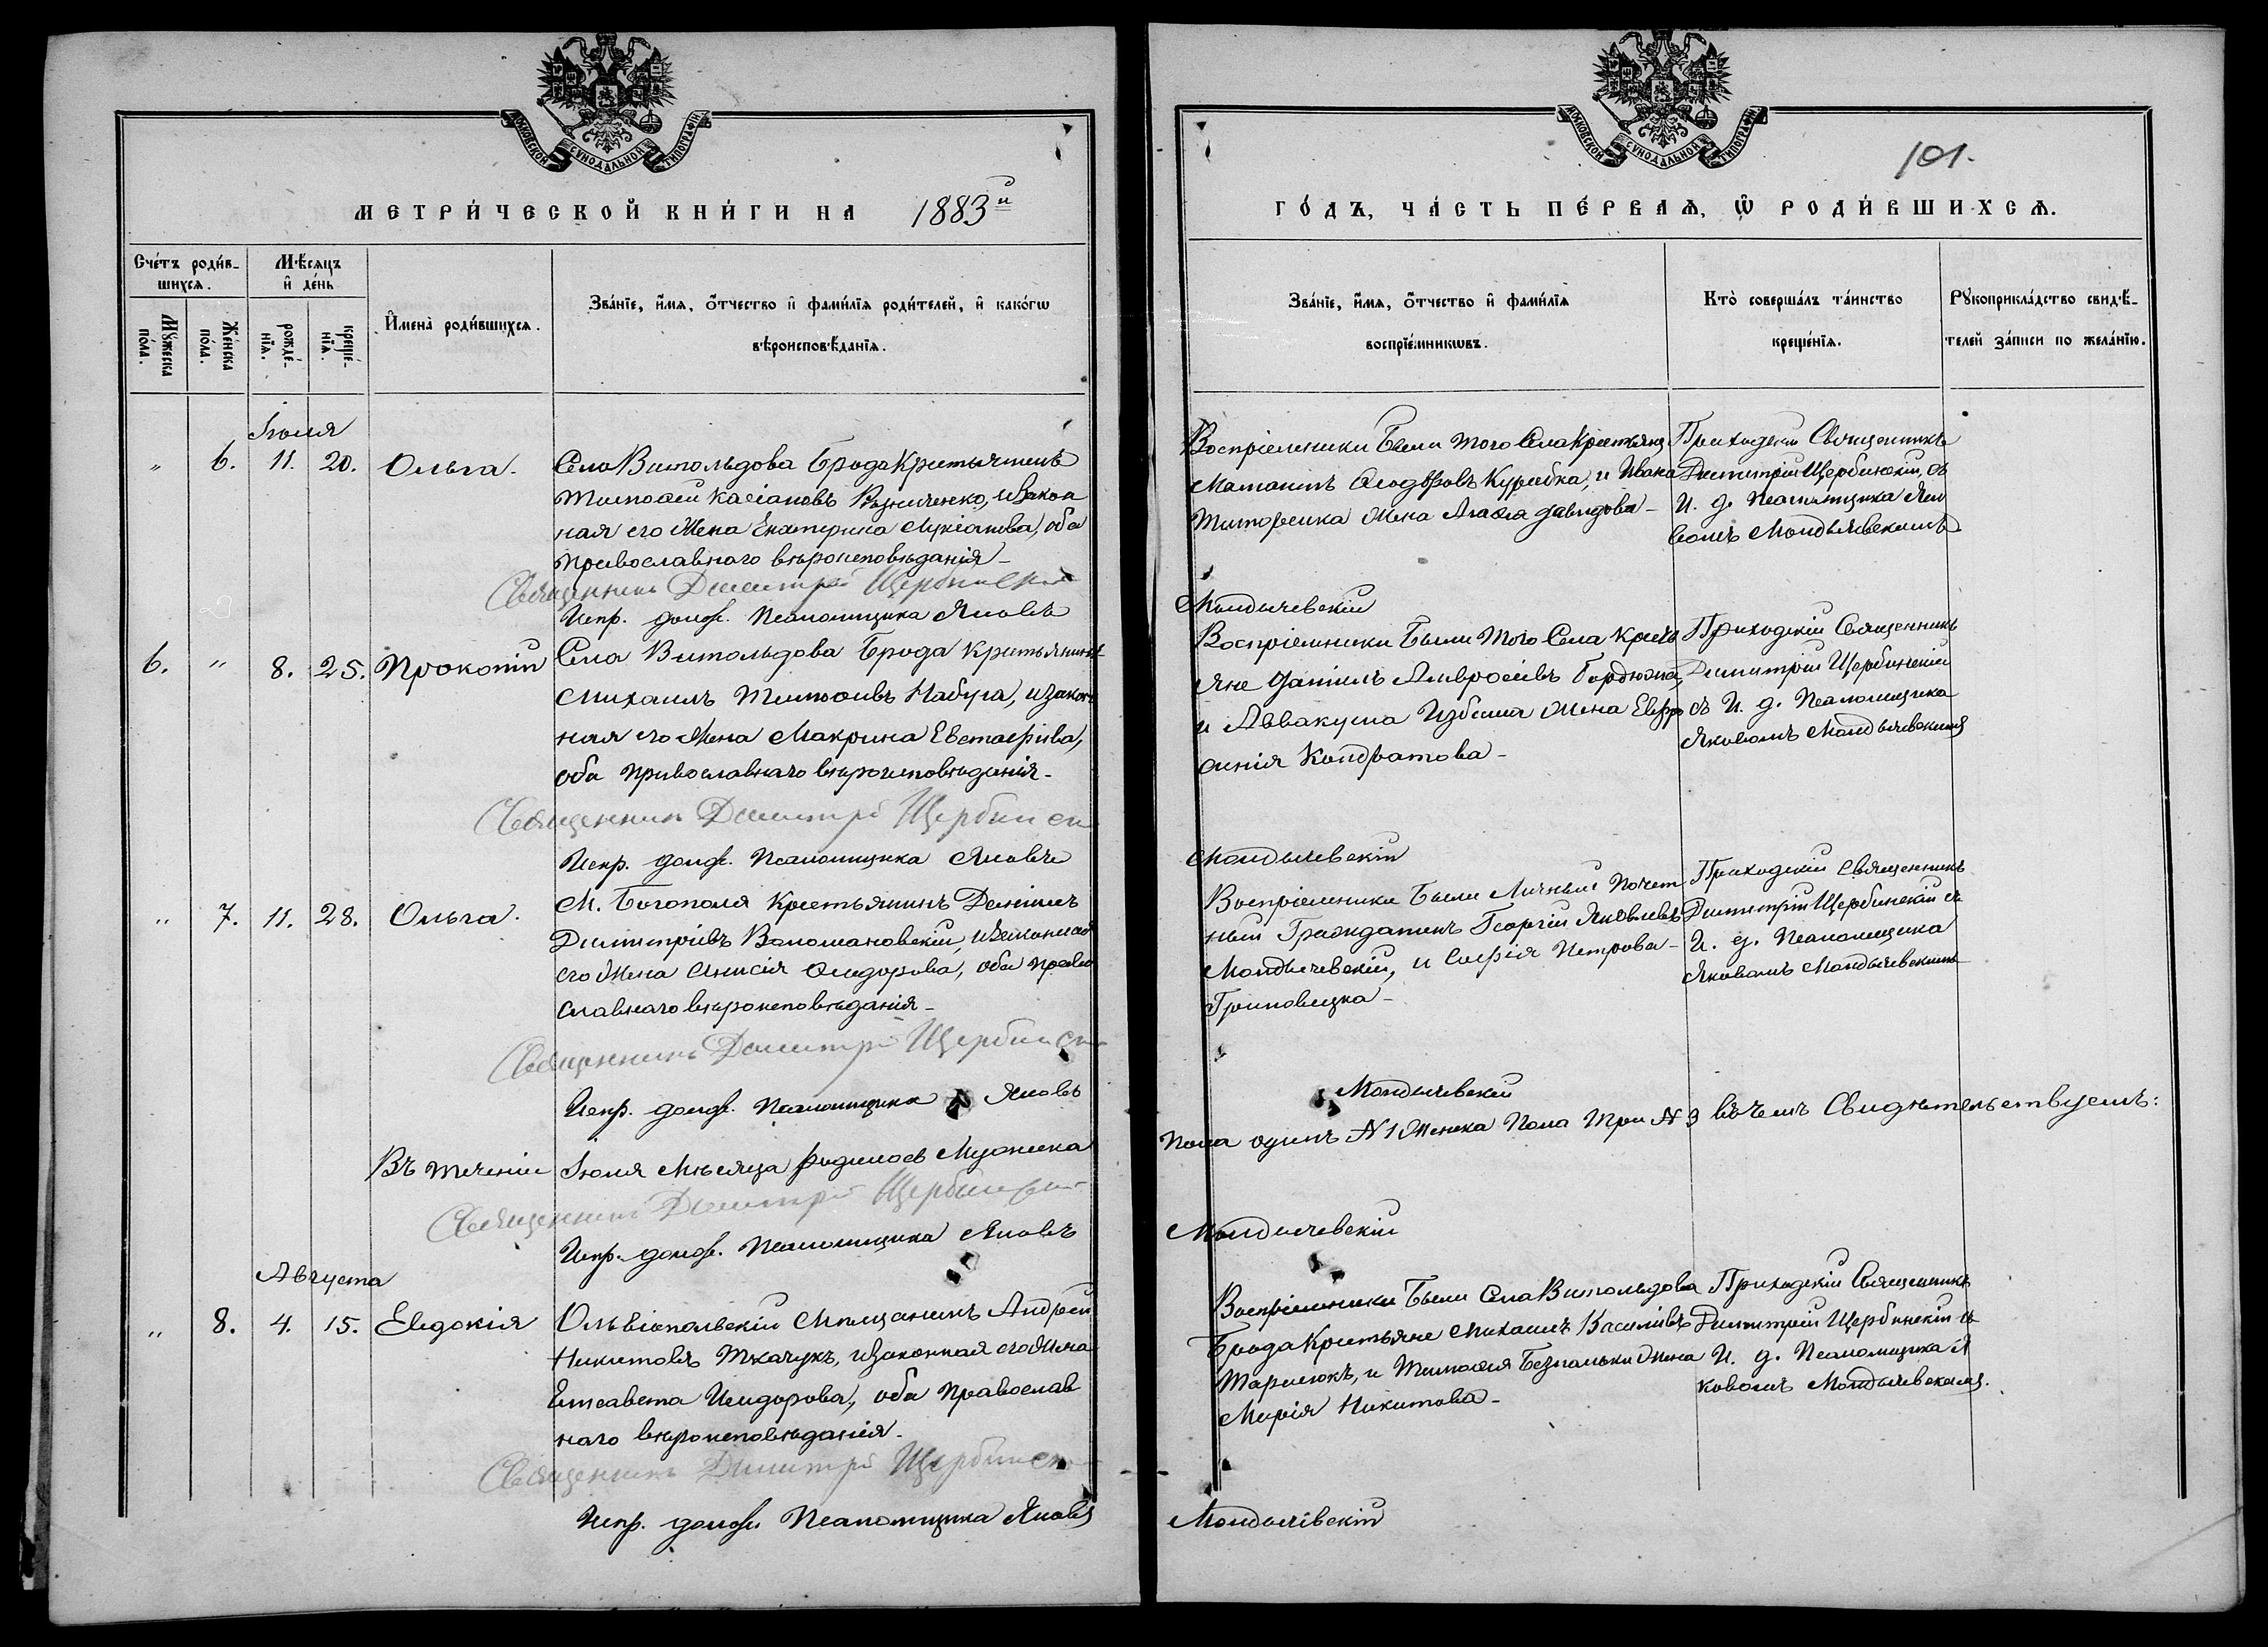 МОСКОВСКОЙ СУНОДАЛЬНОЙ ТИПОГРАФІИ
МЕТРИ́ЧЕСКОЙ КНИ́ГИ НА 1883й
Сче́тъ роди́в-
шихсѧ.
Мꙋ́жеска
по́ла.
Же́нска
по́ла.
Мѣ́сѧцъ
и҆ де́нь
рожде́-
нїѧ.
креще́-
нїѧ.
И҆мена̀ роди́вшихсѧ.
Зва́нїе, и҆́мѧ, ѻ҆́тчество и҆ фами́лїѧ роди́телей, и҆ како́гѡ
вѣроисповѣ́данїѧ.
Іюля
" 6. 11. 20. Ольга.
Села Витольдова Брода Крестьянинъ
Тимоѳей Касіановъ, и закон
ная его Жена Екатерина Лукіанова, оба
православнаго вѣроисповѣданія
Священникъ Димитрій Щербинскій
Испр. должн. Псаломщика Яковъ
6. " 8. 25. Прокопій
Села Витольдова Брода Крестьянинъ
Михаилъ Тимоѳеевъ Набуга, и закон
ная его Жена Макрина Евстафіева,
оба православнаго вѣроисповѣданія
Священникъ Димитрій Щербинскій
Испр. должн. Псаломщика Яковъ
" 7. 11. 28. Ольга.
М. Богополя Крестьянинъ Даніилъ
Димитріевъ Волошановскій, и законная
его Жена Анисія Ѳиодорова, оба право
славнаго вѣроисповѣданія
Священникъ Димитрій Щербинскій
Испр. должн. Псаломщика Яковъ
Въ теченіи Іюля Мѣсяца родилось Мужеска
Священникъ Димитрій Щербинскій
Испр. должн. Псаломщика Яковъ
Августа
" 8. 4. 15. Евдокія
Ольвіопольскій Мѣщанинъ Андрей
Никитовъ Ткачукъ, и законная его Жена
Елисавета Исидорова, оба Православ
наго вѣроисповѣданія.
Священникъ Димитрій Щербинскій
Испр. должн. Псаломщика Яковъ
МОСКОВСКОЙ СУНОДАЛЬНОЙ ТИПОГРАФІИ
101.
ГО́ДЪ, ЧА́СТЬ ПЕ́РВАѦ, Ѡ҆ РОДИ́ВШИХСѦ.
Зва́нїе, и҆́мѧ, ѻ҆́тчество и҆ фами́лїѧ
воспрїе́мникѡвъ.
Кто̀ соверша́лъ та́инство
креще́нїѧ.
Рꙋкоприкла́дство свидѣ́-
телей за́писи по жела́нїю.
Воспріемники были того Села Крестьяне
Ѳиодоровъ, и Ивана
Титоренка Жена Агаѳія Давидова
Приходскій Священникъ
Димитрій Щербинскій, съ
И. д. Псаломщика Яко
вомъ Молдычевскимъ
Молдычевскій
Воспріемники были того Села Кресть
яне Даніилъ Амвросіевъ Бордюжа,
и Аввакума Избаша Жена Евфро
синія Кондратова
Приходскій Священникъ
Димитрій Щербинскій
съ И. д. Псаломщика
Яковомъ Молдычевскимъ
Молдычевскій
Воспріемники были Личный Почет
ный Гражданинъ Георгій Яковлевъ
Молдычевскій, и Софія Петрова
Приходскій Священникъ
Димитрій Щербинскій съ
И. д. Псаломщика
Яковомъ Молдычевскимъ
Молдычевскій
Пола одинъ № 1 Женска Пола Три № 3 въ чемъ Свидѣтельствуемъ:
Молдычевскій
Воспріемники были Села Витольдова
Брода Крестьяне Михаилъ Василіевъ
Тарасюкъ, и Тимоѳея Безпалька Жена
Марія Никитова
Приходскій Священникъ
Димитрій Щербинскій съ
И. д. Псаломщика Я
ковомъ Молдычевскимъ.
Молдычевскій